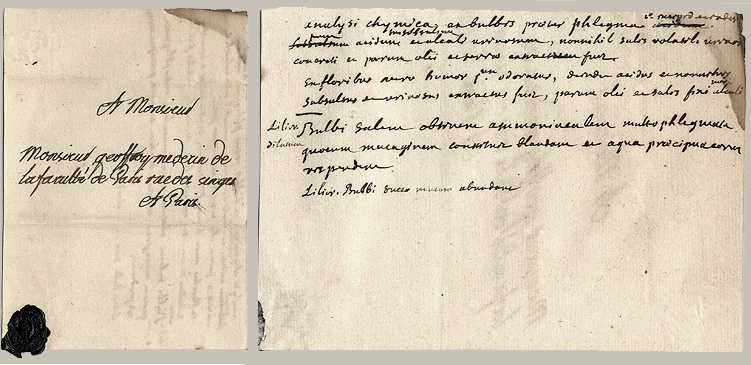 A Monsieur
Monsieur geoffroy medecin de
la faculté de Paris rue des singes
A Paris.
analysi chymica, ex bulbis præter phlegma
acidum et alcali urinosum, nonnihil salis volatilis urinosi
concreti et parum olei et terræ fuit
Ex floribus vero humor odoratus, deinde acidus et
subsalsus et urinosus extractus fuit, parum olei et salis fixi alcali
Lilior. Bulbi salem obtinent ammoniacalem multo phlegmate
dilutum
quorum mucaginem constituit blandam et aqua
Lilior. Bulbi succo abundant